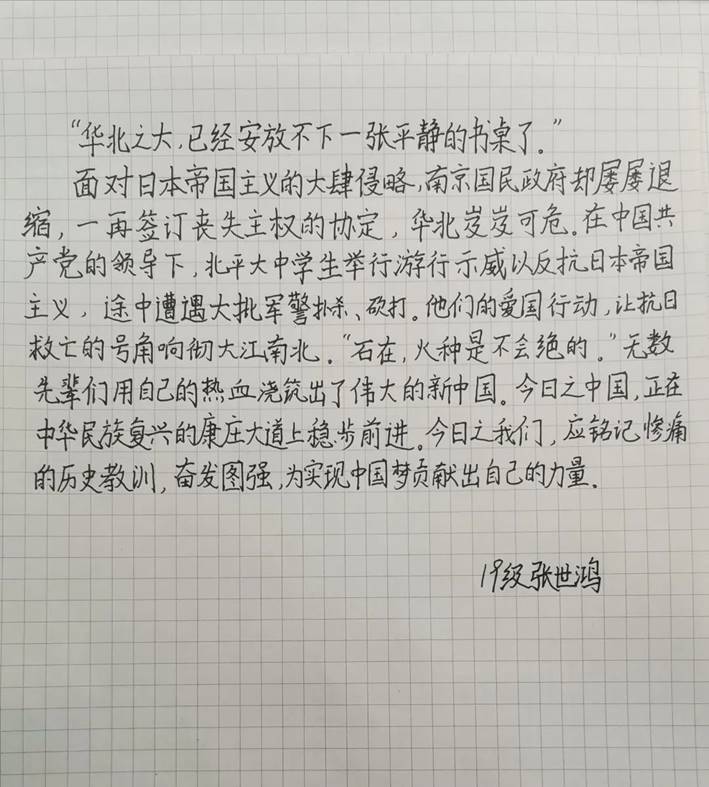 “华北之大,已经安放不下一张平静的书桌了.”
面对日本帝国主义的大肆侵略,南京国民政府却屡屡退
缩,一再签订丧失主权的协定,华北岌岌可危.在中国共
产党的领导下,北平大中学生举行游行示威以反抗日本帝国
主义,途中遭遇大批军警扑杀、砍打.他们的爱国行动,让抗日
救亡的号角响彻大江南北.“石在,火种是不会绝的.”无数
先辈们用自己的热血浇筑出了伟大的新中国.今日之中国,正在
中华民族复兴的康庄大道上稳步前进.今日之我们,应铭记惨痛
的历史教训,奋发图强,为实现中国梦贡献出自己的力量.
19级张世鸿